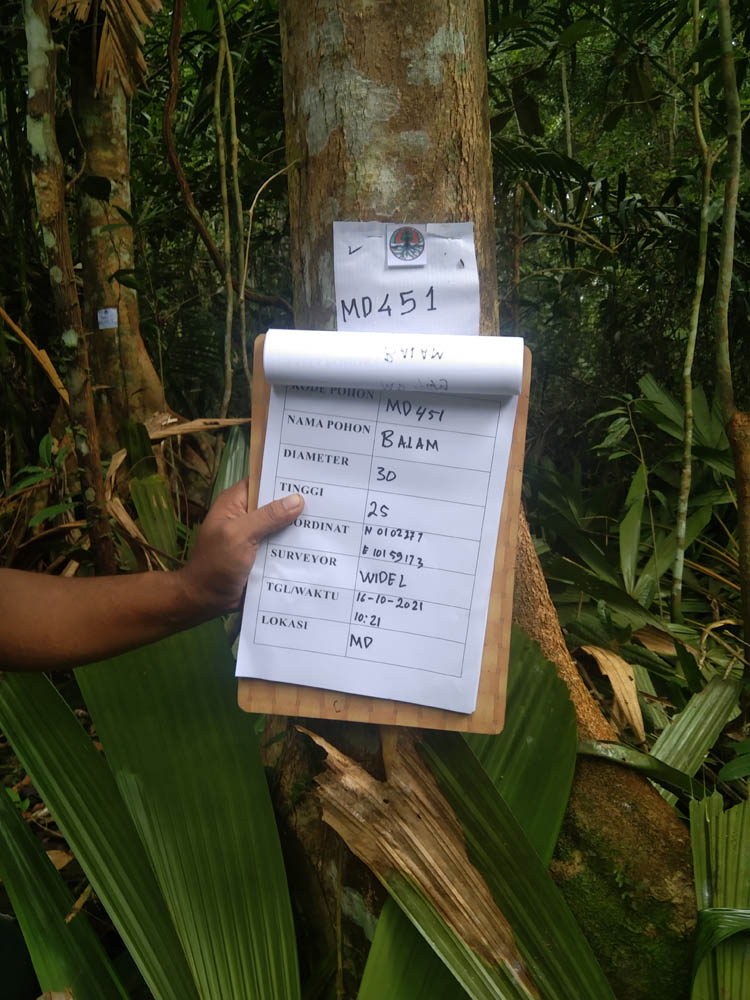 MD451
BALAM
KODE POHON MD451
NAMA POHON BALAM
DIAMETER 30
TINGGI 25
ORDINAT N 0102377
E 1015917,3
SURVEYOR WIDEL
TGL/WAKTU 16-10-2021
10:21
LOKASI MD